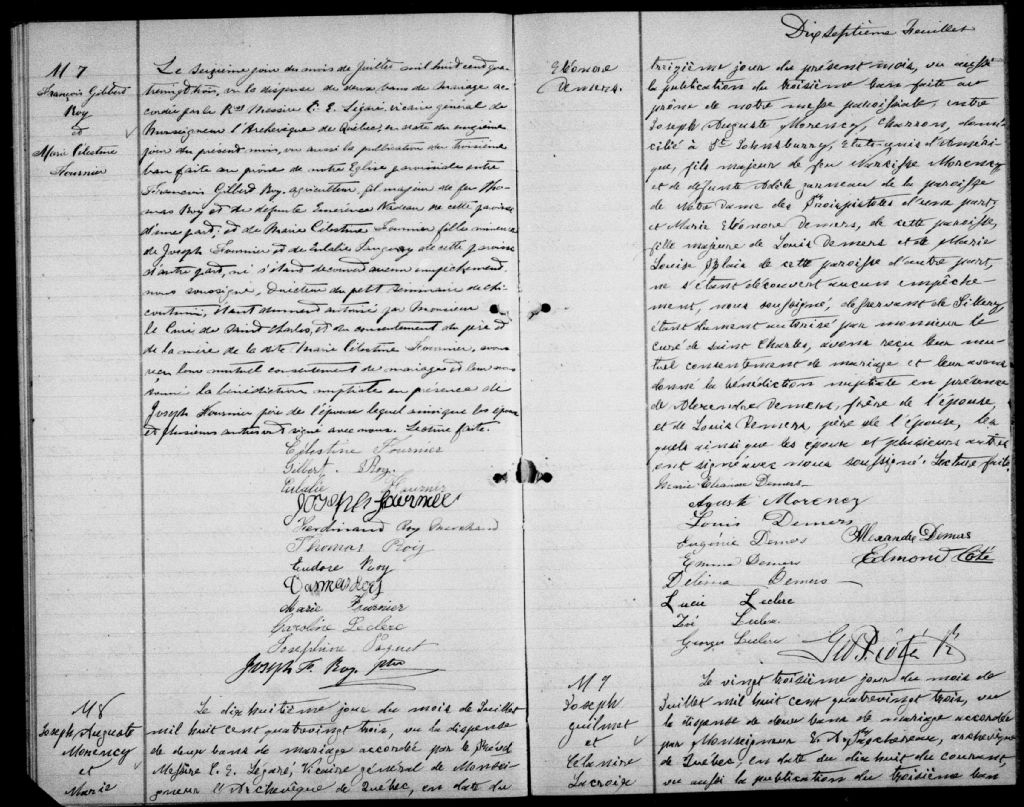 M 7
François Gilbert
Roy
et
Marie Célestine
Fournier
Le seizième jour du mois de Juillet mil huit cent qua-
trevingt trois, vu la dispense de deux bans de mariage ac-
cordée par le Rvd Messire C. E. Légaré, vicaire général de
Monseigneur l'Archevêque de Québec, en date du onzième
jour du présent mois, vu aussi la publication du troisième
ban faite au prône de notre Eglise paroissiale entre
François Gilbert Roy, agriculteur, fils majeur de feu Tho-
mas Roy et de défunte Emérence Nadeau de cette paroisse
d'une part; et de Marie Célestine Fournier fille mineure
de Joseph Fournier et de Eulalie de cette paroisse
d'autre part, ne s'étant découvert aucun empêchement,
nous soussigné, directeur du petit séminaire de Chi-
coutimi, étant dument autorisé par Monsieur
le Curé de Saint Charles, et du consentement du père et
de la mère de la dite Marie Célestine Fournier, avons
reçu leur mutuel consentement de mariage et leur avons
donné la bénédiction nuptiale en présence de
Joseph Fournier père de l'épouse lequel ainsi que les époux
et plusieurs autres ont signé avec nous. Lecture faite.
Célestine Fournier
Gilbert Roy
Eulalie Fournier
Joseph Fournier
Ferdinand Roy Marchand
Thomas Roy
Eudore Roy
Marie Fournier
Caroline Leclerc
Joséphine Paquet
Joseph F. Roy, ptre
M 8
Joseph Auguste
Morency
et
Marie
Le dix huitième jour du mois de Juillet
mil huit cent quatrevingt trois, vu la dispense
de deux bans de mariage accordée par le Révd
Messire C. E. Légaré, Vicaire général de Monsei-
gneur l'Archevêque de Québec, en date du
Dix septième Feuillet
Eléonore
Demers.
treizième jour du présent mois, vu aussi
la publication du troisième ban faite au
prône de notre messe paroissiale, entre
Joseph Auguste Morency, Charron, domi-
cilié à St Johnsburry, Etats-unis d'Améri-
que, fils majeur de feu Narcisse Morency
et de défunte Adèle garneau de la paroisse
de Notre Dame des Troispistoles d'une part,
et Marie Eléonore Demers, de cette paroisse,
fille majeure de Louis Demers et de Marie
Louise Blais de cette paroisse d'autre part,
ne s'étant découvert aucun empêche-
ment, nous soussigné, desservant de Sillery,
étant dument autorisé par monsieur le
Curé de Saint Charles, avons reçu leur mu-
tuel consentement de mariage et leur avons
donné la bénédiction nuptiale en présence
de Alexandre Demers, frère de l'épouse,
et de Louis Demers, père de l'épouse, les-
quels ainsi que les époux et plusieurs autres
ont signé avec nous soussigné. Lecture faite.
Marie Eléonore Demers
Aguste Morency
Louis Demers
Eugénie Demers Alexandre Demers
Emma Demers Edmond Côté
Délima Demers
Lucie Leclerc
Zoé Leclerc
Georges Leclerc
M 9
Joseph
Guilmet
et
Célanire
Lacroix
Le vingt troisième jour du mois de
Juillet mil huit cent quatrevingt trois, vu
la dispense de deux bans de mariage accordée
par Monseigneur E. A. Taschereau, archevêque
de Québec, en date du dix huit du courant,
vu aussi la publication du troisième ban